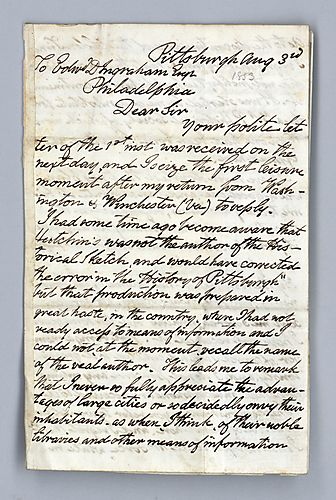 Pittsburgh Aug 3rd
1853
To Edwd D Ingraham Esqr
Philadelphia
Dear Sir
Your polite let
ter of the 1st inst was received on the
next day, and I seize the first leisure
moment after my return from Wash-
ington & Winchester (Va) to reply.
I had some time ago become aware that
Hutchins was not the author of the His-
torical Sketch, and would have corrected
the error in the "History of Pittsburgh"
but that production was prepared in
great haste, in the country, when I had not
ready access to means of information and I
could not, at the moment, recall the name
of the real author. This leads me to remark
that I never so fully appreciate the advan-
tages of large cities or so decidedly envy their
inhabitants, as when I think of their noble
libraries and other means of information